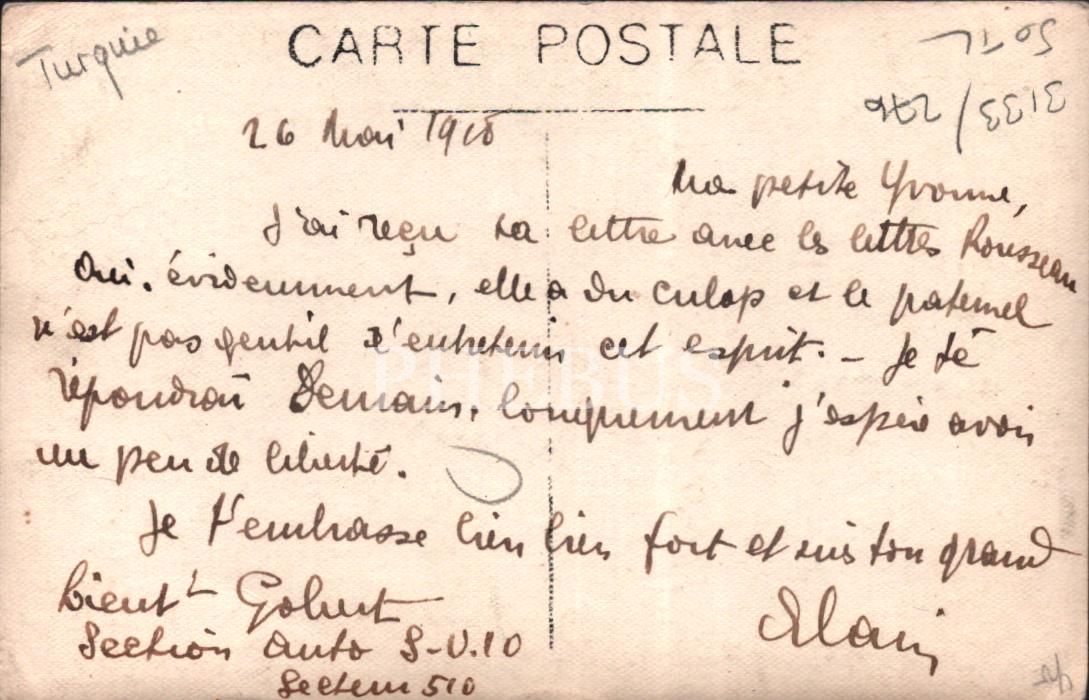 Turquie
CARTE POSTALE
31133/276
26 Mai 1918
Ma petite Yvonne,
J'ai reçu ta lettre avec les lettres Rousseau
Oui, évidemment, elle a du culop et le paternel
n'est pas gentil d'entretenir cet esprit. - Je te
répondrai demain, longuement j'espère avoir
un peu de liberté.
Je t'embrasse bien bien fort et suis ton grand
Alain
Lieut Gobert
Section Auto S-V.10
Secteur 510
PHEBUS